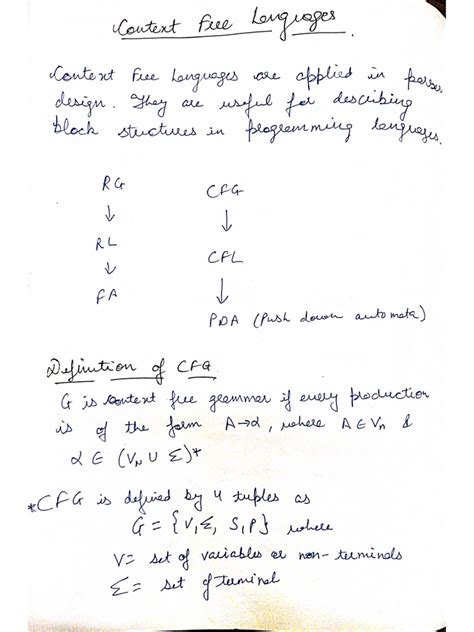 Context Free Languages.
Context Free Languages are applied in parser
design. They are useful for describing
block structures in programming languages.
RG CFG
↓ ↓
RL CFL
↓ ↓
FA PDA (Push down automata)
Definition of CFG
G is context free grammar if every production
is of the form A→α, where A ∈ Vn &
α ∈ (VN ∪ Σ)*
*CFG is defined by 4 tuples as
G = {V, Σ, S, P} where
V = set of variables or non-terminals
Σ = set of terminal